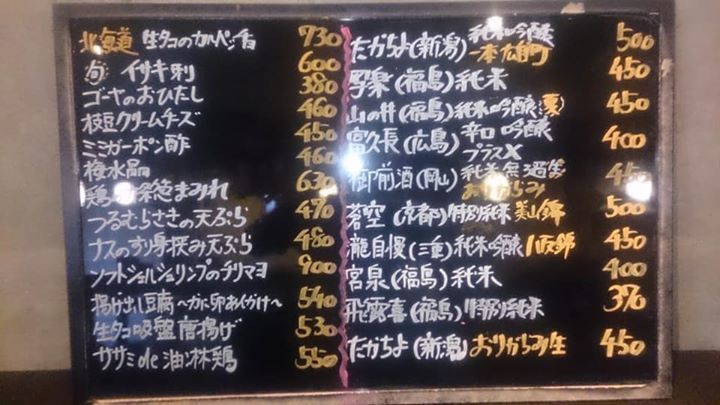 北海道 生タコのカルパッチョ 730
旬 イサキ刺 600
ゴーヤのおひたし 380
枝豆クリームチーズ 460
ミミガーポン酢 450
梅水晶 460
鶏の彩ねぎまみれ 630
つるむらさきの天ぷら 470
ナスのすり身挟み天ぷら 480
ソフトシェルシュリンプのチリマヨ 900
揚げ出し豆腐〜カニ卵あんかけ〜 540
生タコ吸盤唐揚げ 530
ササミde油淋鶏 550
たかちよ(新潟) 純米吟醸 500
一本〆
写楽(福島)純米 450
山の井(福島)純米吟醸(夏) 450
富久長(広島)辛口 吟醸 400
プラスX
御前酒(岡山) 純米無濾過生 450
おりがらみ
蒼空(京都)特別純米 美山錦 500
瀧自慢(三重)純米吟醸 450
宮泉(福島)純米 400
飛露喜(福島)特別純米 390
たかちよ(新潟)おりがらみ生 450